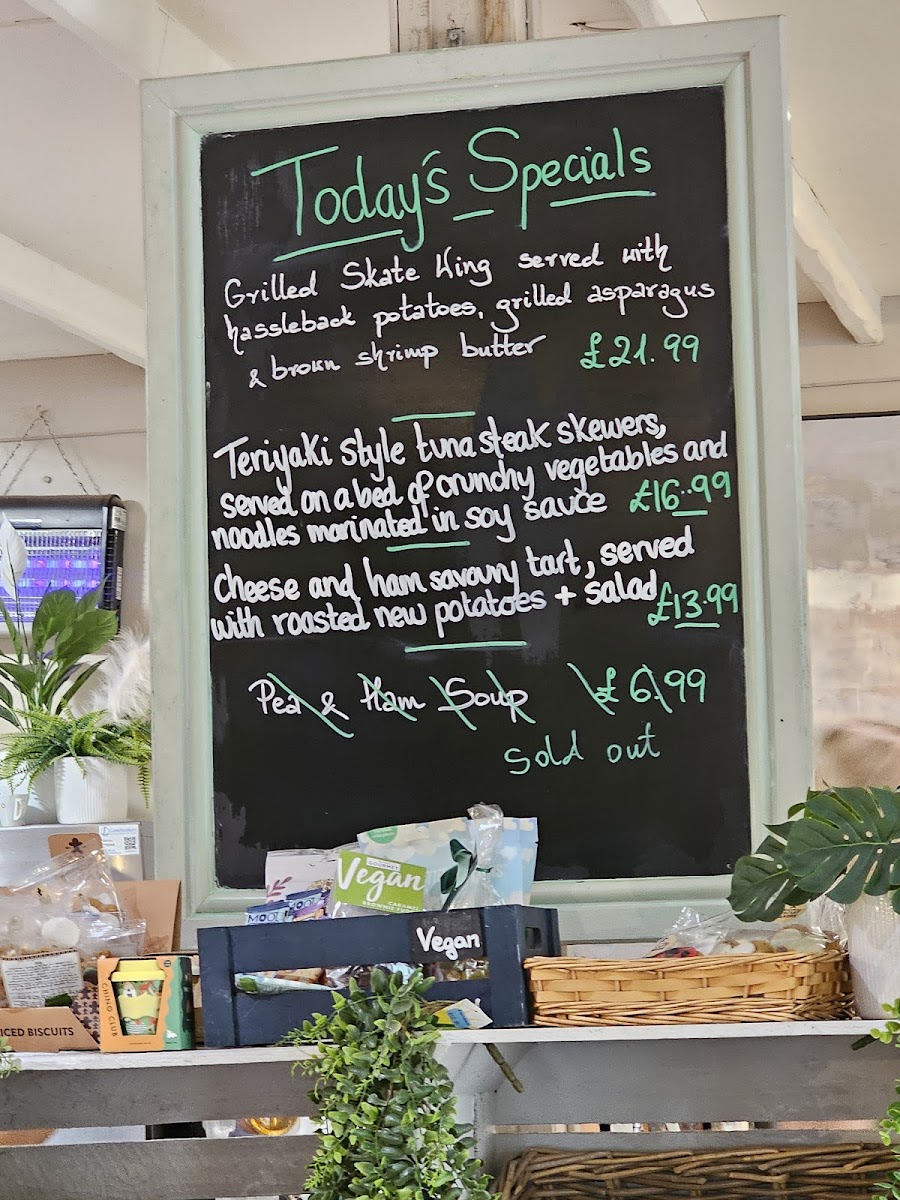 Today's Specials
Grilled Skate Wing served with
hassleback potatoes, grilled asparagus
& brown shrimp butter £21.99
Teriyaki style tuna steak skewers,
served on a bed of crunchy vegetables and
noodles marinated in soy sauce £16.99
Cheese and ham savoury tart, served
with roasted new potatoes + salad £13.99
Pea & Ham Soup £6.99
Sold out
GOURMET
Vegan
CARAMEL
BROWNIE
MOO
Vegan
CHINO CLUB
ICED BISCUITS